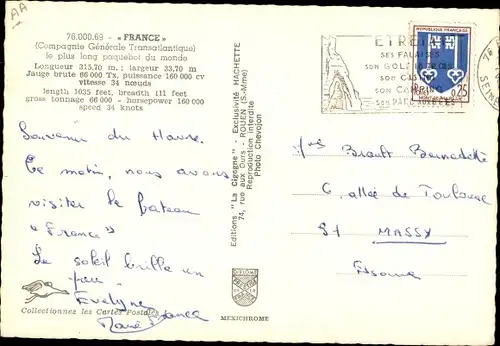 AA
76.000.69 - « FRANCE »
(Compagnie Générale Transatlantique)
le plus long paquebot du monde
Longueur 315,70 m. ; largeur 33,70 m
Jauge brute 66 000 Tx, puissance 160 000 cv
vitesse 34 nœuds
length 1035 feet, breadth 111 feet
gross tonnage 66 000 - horsepower 160 000
speed 34 knots
Souvenir du Havre.
Ce matin, nous avons
visiter le bateau
"France"
Le soleil brille un
peu.
Evelyne
Collectionnez les Cartes Postales
Editions "La Cigogne" - Exclusivité HACHETTE
74, rue aux Ours - ROUEN (S.-Mme)
Reproduction interdite
Photo Chevojon
MEXICHROME
ETRETAT
SES FALAISES
SON GOLF
SON CASINO
SON CAMPING
SON PARC
REPUBLIQUE FRANÇAISE
0,25
Brault Bernadette
6, allée de Toulouse
91 MASSY
Essonne